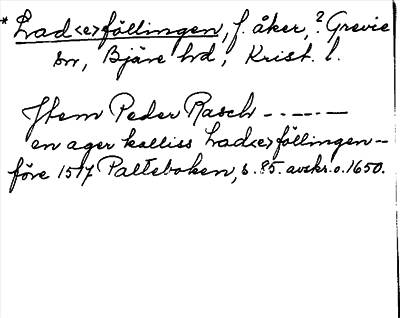 * Lad<e>föllingen, f. åker, ? Grevie
sn, Bjäre hd, Krist. l.
Jtem Peder Rasch - - - - - -
en ager kalliss Lad<e>föllingen -
före 1517 Palteboken, s. 85. avskr. o. 1650.